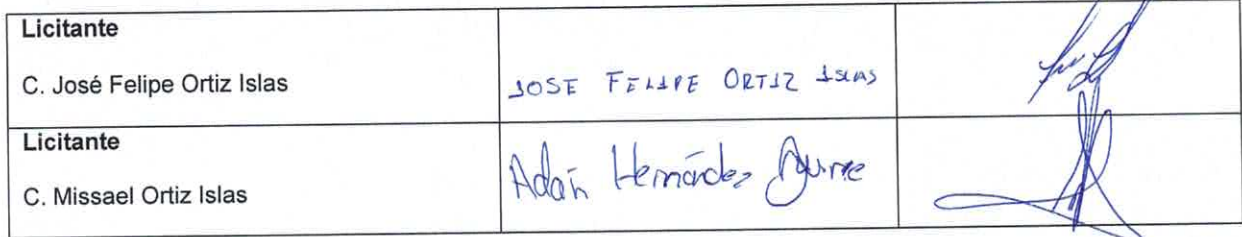 Licitante
C. José Felipe Ortiz Islas
JOSE FELIPE ORTIZ ISLAS
Licitante
C. Missael Ortiz Islas
Adán Hernández Aguirre